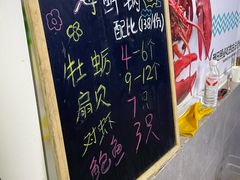 海鲜锅
配比(138/份)
牡蛎 4-6个
扇贝 9-12个
对虾 7只
鲍鱼 3只